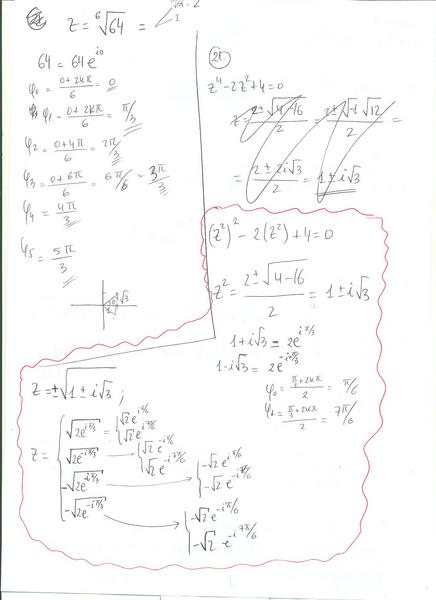 z = ⁶√64 =
64 = 64 e^{i0}
φ₀ = (0+2kπ)/6 = 0
φ₁ = (0+2kπ)/6 = π/3
φ₂ = (0+4π)/6 = 2π/3
φ₃ = (0+6π)/6 = 6π/6 = 3π/3
φ₄ = 4π/3
φ₅ = 5π/3
1 √3
21
z⁴-2z²+4=0
z = (2±√(4-16))/2 = (2±√-1 √12)/2 =
= (2±2i√3)/2 = 1±i√3
(z²)² - 2(z²) + 4 = 0
z² = (2±√(4-16))/2 = 1±i√3
1+i√3 = 2e^{iπ/3}
1-i√3 = 2e^{-iπ/3}
φ₀ = (π/3+2kπ)/2 = π/6
φ₁ = (π/3+2kπ)/2 = 7π/6
z = ±√(1±i√3) ;
z = { √(2e^{iπ/3}) = { √2 e^{iπ/6}
√2 e^{i7π/6}
√(2e^{-iπ/3}) → { √2 e^{-iπ/6}
√2 e^{-i7π/6}
-√(2e^{iπ/3}) → { -√2 e^{iπ/6}
-√2 e^{i7π/6}
-√(2e^{-iπ/3}) → { -√2 e^{-iπ/6}
-√2 e^{-i7π/6}